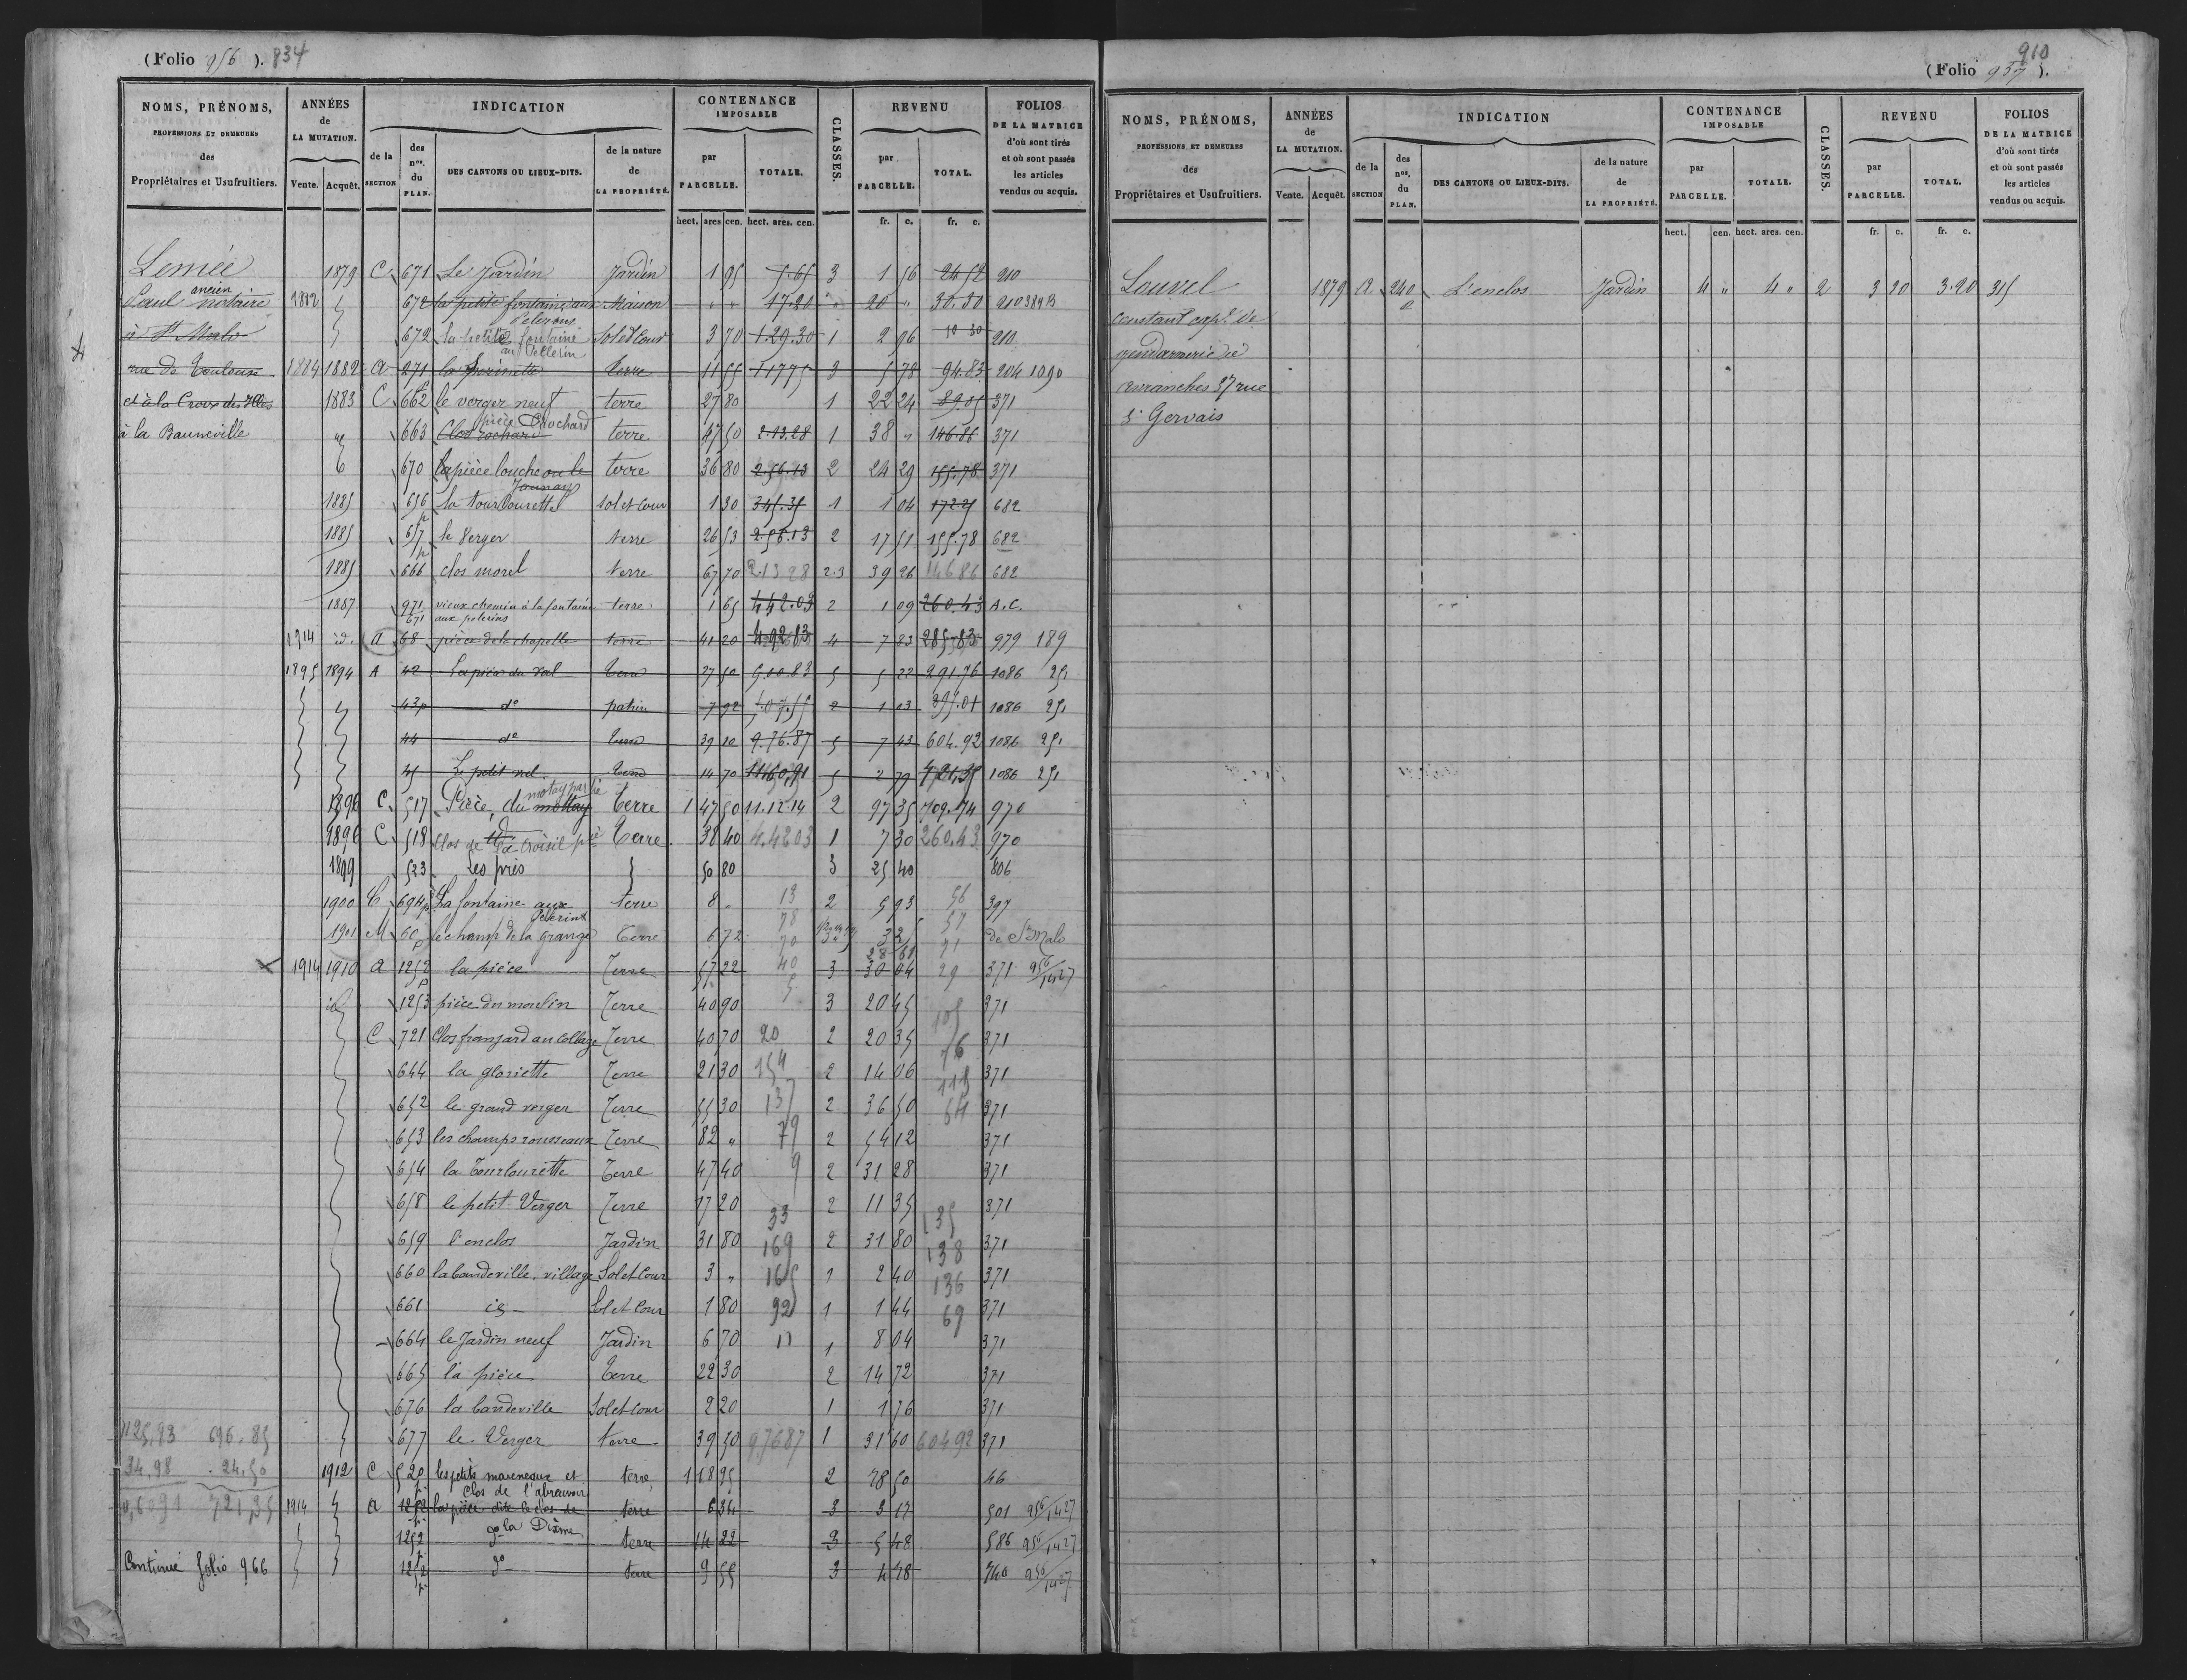 (Folio 956 ). 834
NOMS, PRÉNOMS,
PROFESSIONS ET DEMEURES
des
Propriétaires et Usufruitiers.
ANNÉES
de
LA MUTATION.
Vente. Acquêt.
INDICATION
de la
SECTION
des
nos.
du
PLAN.
DES CANTONS OU LIEUX-DITS.
de la nature
de
LA PROPRIÉTÉ.
CONTENANCE
IMPOSABLE
par
PARCELLE.
TOTALE.
hect. ares cen. hect. ares. cen.
CLASSES.
REVENU
par
PARCELLE.
TOTAL.
fr. c. fr. c.
FOLIOS
DE LA MATRICE
d'où sont tirés
et où sont passés
les articles
vendus ou acquis.
Lemée 1879 C 671 Le Jardin Jardin 1 95 5.65 3 1 56 24 52 210
Paul ancien notaire 1882 672 la petite fontaine aux Pelerins Maison " " 17.20 " 20 " 30.80 210 389 B
à St Malo 672 la petite fontaine au Pellerin Sol et Cour 3 70 1.29.30 1 2 96 10 30 210
rue de Toulouse 1884 1882 a 271 la terre 11 55 1 17 75 3 5 78 94.83 204 1090
et à la Croix des Illes 1883 C 662 le verger neuf terre 27 80 1 22 24 89.05 371
à la Bauneville 663 Clos rochard pièce Brochard terre 47 50 2.13.28 1 38 " 146.86 371
670 la pièce louche ou le Jaunay terre 36 80 2.56.13 2 24 29 155.78 371
1885 656 p la tourlourette sol et Cour 1 30 345.35 1 1 04 172.25 682
1885 657 p le Verger terre 26 53 2.56.13 2 17 51 155.78 682
1885 666 clos morel terre 67 70 2.13 28 2.3 39 26 146 86 682
1887 971 671 vieux chemin à la fontaine aux pelerins terre 1 65 4.42.03 2 1 09 260.43 A.C.
1914 id. a 68 pièce de la chapelle terre 41 20 4.92.83 4 7 83 285.83 979 189
1895 1894 A 42 La pièce du Val terre 27 50 5.10.83 5 5 22 291.76 1086 251
43p do patis 7 92 5.07.55 2 1 03 1086 251
44 do terre 39 10 9.76.87 5 7 43 604.92 1086 251
45 Le petit terre 14 70 11.60,91 5 2 79 721,35 1086 251
1896 C. 517 Pièce, du mottay motay partie terre 1 47 50 11.12.14 2 97 35 709.74 970
1896 C 518 Clos de la croisil Terre 38 40 4.42 03 1 7 30 260.43 970
1899 523 Les prés 50 80 3 25 40 806
1900 C 694p La fontaine aux Pelerins terre 8 " 13 2 5 93 56 397
1901 M 60p le champ de la Grange terre 6 72 78 3 25 57 de St Malo
1914 1910 a 1252 p la pièce Terre 57 22 40 3 28 61 30 04 29 371 956/1427
id 1253 pièce du moulin Terre 40 90 5 3 20 45 371
C 721 Clos franjard au Collage Terre 40 70 20 2 20 35 105 371
644 la gloriette Terre 21 30 154 2 14 06 76 371
652 le grand verger Terre 55 30 137 2 36 50 64 371
653 les champs rousseaux Terre 82 " 79 2 54 12 371
654 la Tourlourette Terre 47 40 9 2 31 28 371
658 le petit Verger Terre 17 20 2 11 35 371
659 l'enclos Jardin 31 80 33 2 31 80 35 371
660 la baudeville. village Sol et Cour 3 " 169 1 2 40 138 371
661 id Sol et Cour 1 80 92 1 1 44 69 371
664 le Jardin neuf Jardin 6 70 11 1 8 04 371
665 la pièce Terre 22 30 2 14 72 371
676 la baudeville Sol et Cour 2 20 1 1 76 371
1125,93 696.85 677 le Verger terre 39 50 9.76 87 1 31 60 604 92 371
34,98 24,50 1912 C 520 p les petits marcneaux et terre 1 18 95 2 78 50 46
1160 91 721,35 1914 a 1252 p Clos de l'abreuvoir la pièce dite le clos de terre 6 34 3 3 17 501 956/1427
1252 p do la Dixme terre 14 22 3 5 48 586 956/1427
Continué folio 966 1252 p do terre 9 55 3 4 78 740 956/1427
910
(Folio 957 ).
NOMS, PRÉNOMS,
PROFESSIONS ET DEMEURES
des
Propriétaires et Usufruitiers.
ANNÉES
de
LA MUTATION.
Vente. Acquêt.
INDICATION
de la
SECTION
des
nos.
du
PLAN.
DES CANTONS OU LIEUX-DITS.
de la nature
de
LA PROPRIÉTÉ.
CONTENANCE
IMPOSABLE
par
PARCELLE.
TOTALE.
hect. cen. hect. ares. cen.
CLASSES.
REVENU
par
PARCELLE.
TOTAL.
fr. c. fr. c.
FOLIOS
DE LA MATRICE
d'où sont tirés
et où sont passés
les articles
vendus ou acquis.
Louvel 1879 a 240 p L'enclos Jardin 4 " 4 " 2 3 20 3.20 315
constant capne de
gendarmerie à
avranches 37 rue
St Gervais